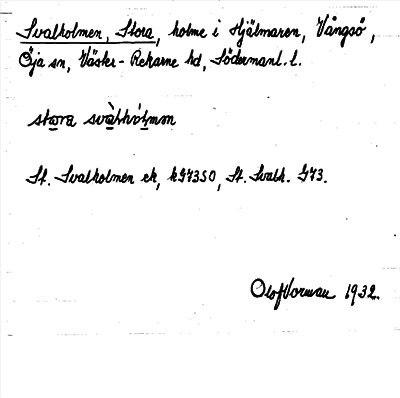 Svalholmen, Stora, holme i Hjälmaren, Vångsö,
Öja sn, Väster-Rekarne hd, Södermanl. l.
stora svàlhólmən
St. Svalholmen ek, kG7350, St. Svalh. G73.
Olof Vorman 1932.